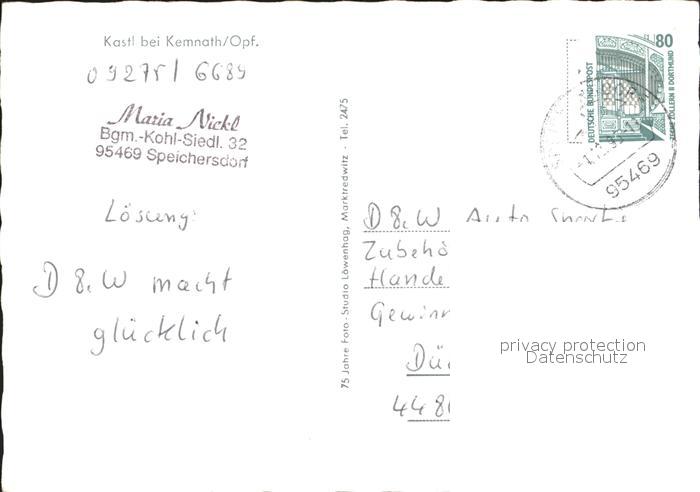 Kastl bei Kemnath/Opf.
09275/ 6689
Maria Nickl
Bgm.-Kohl-Siedl. 32
95469 Speichersdorf
Lösung:
D & W macht
glücklich
75 Jahre Foto-Studio Löwenhag, Marktredwitz · Tel. 2475
80
DEUTSCHE BUNDESPOST
ZECHE ZOLLERN II DORTMUND
95469
D & W Auto
Zubehö
Hande
Gewinn
Dü
448
privacy protection
Datenschutz